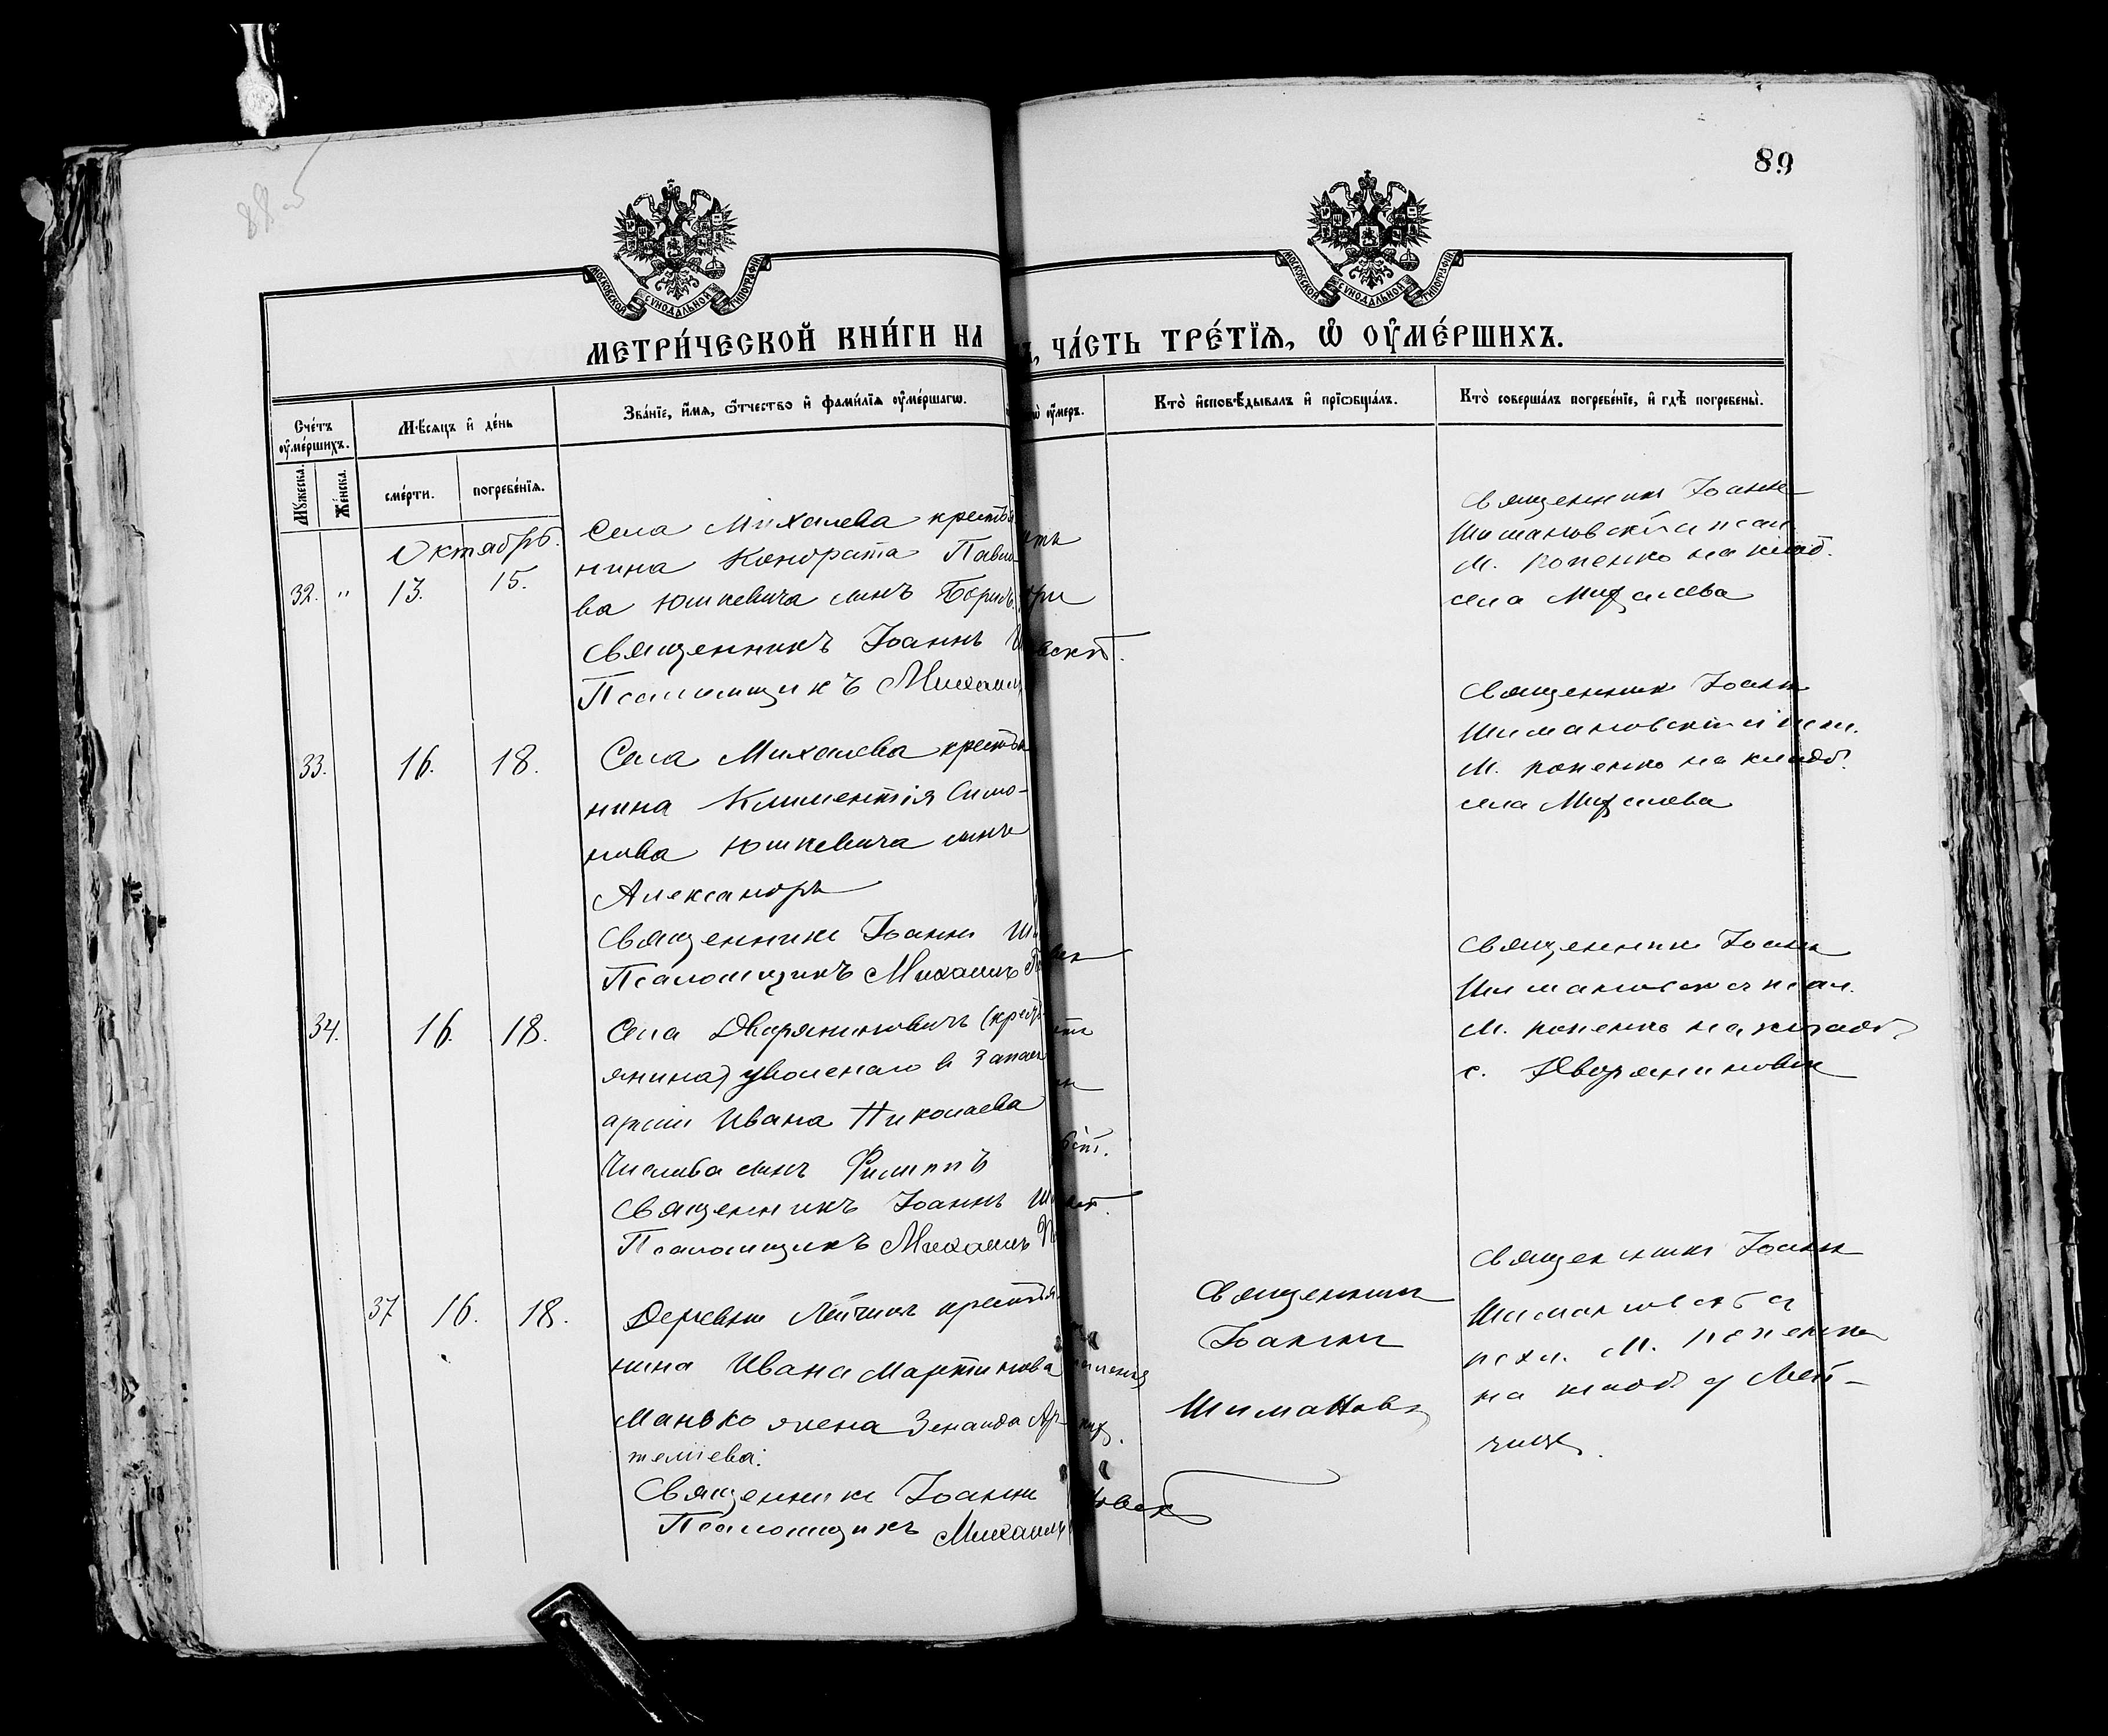 89
МОСКОВСКОЙ СѴНОДАЛЬНОЙ ТИПОГРАФІИ
МОСКОВСКОЙ СѴНОДАЛЬНОЙ ТИПОГРАФІИ
МЕТРИ́ЧЕСКОЙ КНИ́ГИ НА
, ЧА́СТЬ ТРЕ́ТЇѦ, Ѿ ОУ҆МЕ́РШИХЪ.
Сче́тъ оу҆ме́ршихъ.
Мѣ́сяцъ и҆ де́нь
Зва́нїе, и҆́мѧ, ѻ҆́тчество и҆ фами́лїѧ оу҆ме́ршагѡ.
оу҆́меръ.
Кто̀ и҆сповѣ́дывалъ и҆ прїѡбща́лъ.
Кто̀ соверша́лъ погребе́нїе, и҆ гдѣ̀ погребены̀.
Мꙋ́жеска.
Же́нска.
сме́рти.
погребе́нїѧ.
Октябрь.
32. " 13. 15.
Села Михалева крестья
нина Кондрата Павло
ва Юшкевича сынъ Борисъ
Священникъ Іоаннъ
Псаломщикъ Михаилъ
Священникъ Іоаннъ
Шимановскій и псал.
М. Попенко на клад.
села Михалева
33. 16. 18.
Села Михалева крестья
нина Климентія Симо-
нова Юшкевича сынъ
Александръ
Священникъ Іоаннъ
Псаломщикъ Михаилъ
Священникъ Іоаннъ
Шимановскій и псал.
М. Попенко на кладб.
села Михалева
34. 16. 18.
Села Дворяниновичъ (крест
янина) уволенаго в запасъ
арміи Ивана Николаева
сынъ Филиппъ
Священникъ Іоаннъ
Псаломщикъ Михаилъ
Священникъ Іоаннъ
Шимановскій и псал.
М. Попенко на кладб.
с. Дворяниновичъ
37 16. 18.
Деревни крестья
нина Ивана Мартинова
Манько жена Зенаида Ар
темiева.
Священникъ Іоаннъ
Псаломщикъ Михаилъ
Священникъ
Іоаннъ
Шимановскій
Священникъ Іоаннъ
Шимановскій и
псал. М. Попенко
на кладб. д.